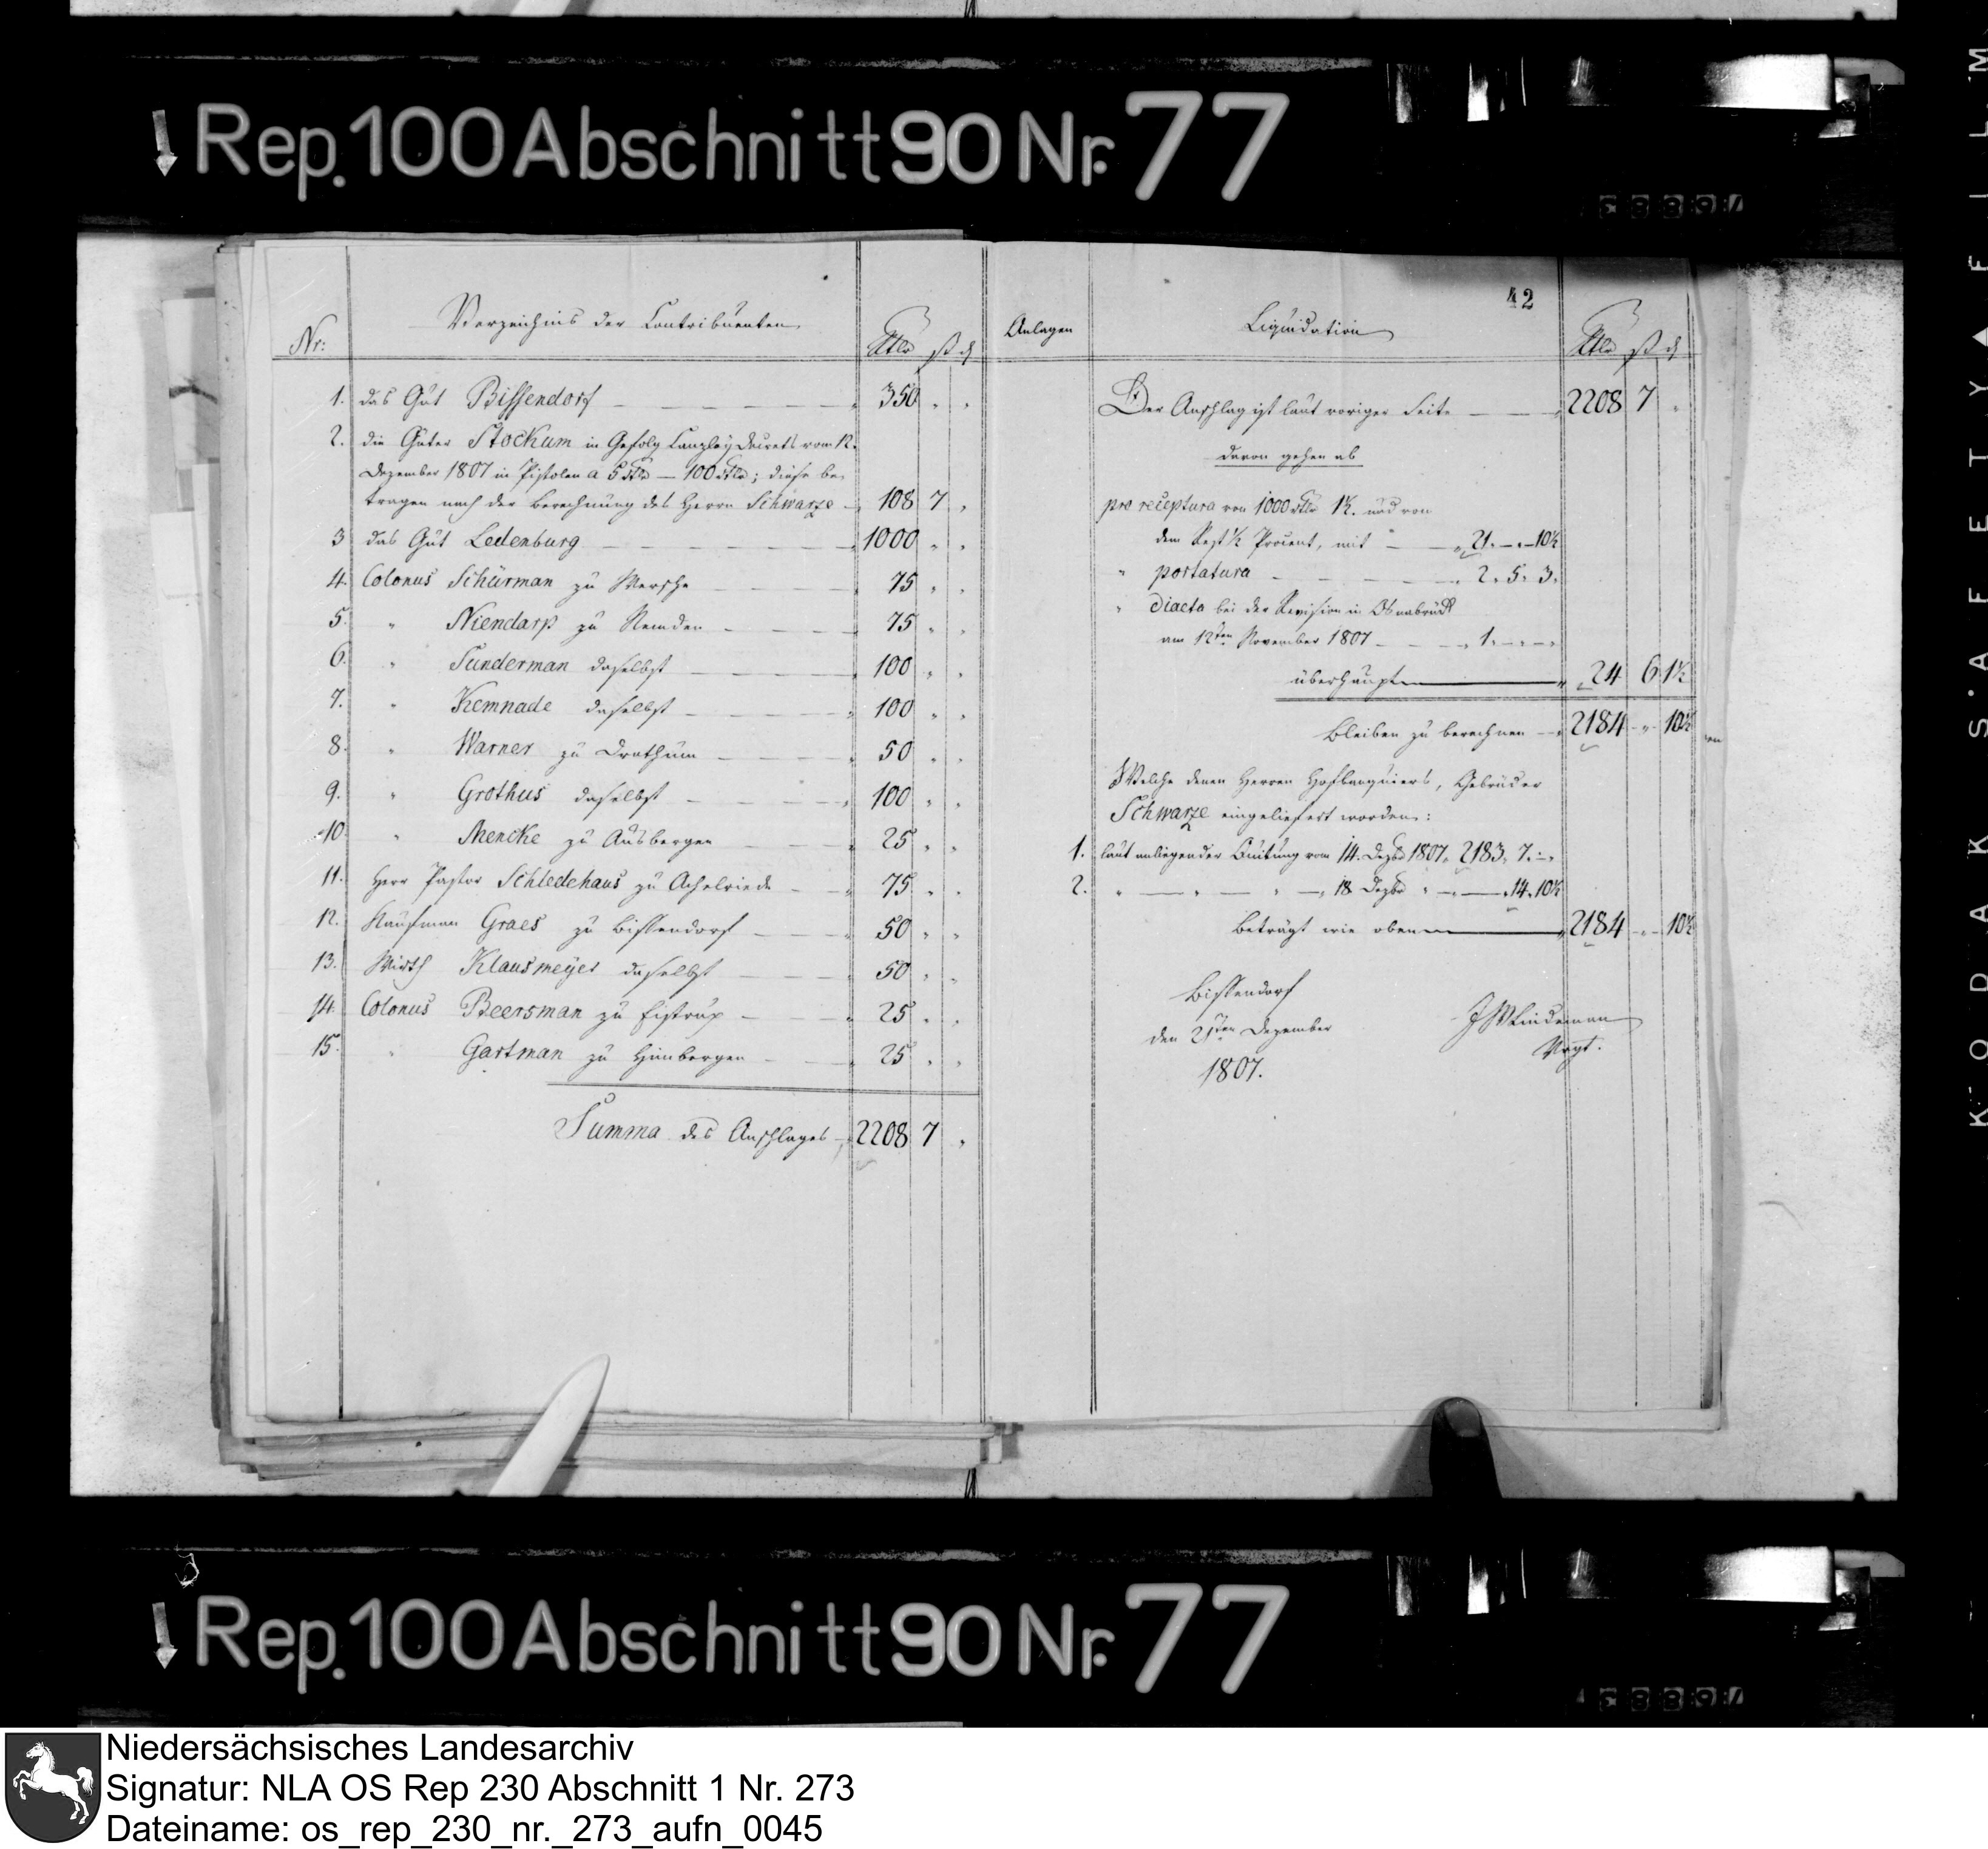 Rep. 100 Abschnitt 90 Nr. 77
Nr:
Verzeichnis der Contribuenten.
Rtlr ß ₰
1. das Gut Bissendorf — — — 350 „ „
2. die Güter Stockum in Gefolg Canzley Decrets vom 12.
Dezember 1807 in Pistolen a 5 Rtlr — 100 Rtlr; diese be-
tragen nach der Berechnung des Herrn Schwarze — 108 7 „
3 das Gut Ledenburg — — — 1000 „ „
4. Colonus Schürman zu Wersche — — 75 „ „
5. „ Niendarp zu Nemden — — 75 „ „
6. „ Sunderman daselbst — — 100 „ „
7. „ Kemnade daselbst — — 100 „ „
8. „ Warner zu Drathum — — 50 „ „
9. „ Grothus daselbst — — 100 „ „
10. „ Mencke zu Ausbergen — — 25 „ „
11. Herr Pastor Schledehaus zu Achelriede — 75 „ „
12. Kaufman Graes zu Bissendorf — — 50 „ „
13. Wirth Klausmeyer daselbst — — 50 „ „
14. Colonus Beersman zu Eistrup — — 25 „ „
15. „ Gartman zu Himbergen — — 25 „ „
Summa des Anschlages — 2208 7 „
42
Anlagen
Liquidation
Rtlr ß ₰
Der Anschlag ist laut voriger Seite — — 2208 7 „
davon gehen ab
pro receptura von 1000 Rtlr 1½. und von
dem Rest ½ Procent, mit — — 21. — „ — 10½
„ portatura — — — 2. 5. 3.
„ Diaeta bei der Revision in Osnabrück
am 12ten November 1807 — — 1. — „ —
überhaupt — 24 6 1½
Bleiben zu berechnen — 2184 „ 10½
Welche denen Herren Hofbanquiers, Gebrüder
Schwarze eingeliefert worden:
1. laut anliegender Quitung vom 14. Dezbr 1807. 2183. 7. „
2. „ — „ — „ — 18 Dezbr „ — — 14. 10½
Beträgt wie oben — 2184 „ 10½
Bissendorf
den 21ten Dezember
1807.
J W Lindeman
Vogt.
Rep. 100 Abschnitt 90 Nr. 77
KODAK SAFETY FILM
Niedersächsisches Landesarchiv
Signatur: NLA OS Rep 230 Abschnitt 1 Nr. 273
Dateiname: os_rep_230_nr._273_aufn_0045